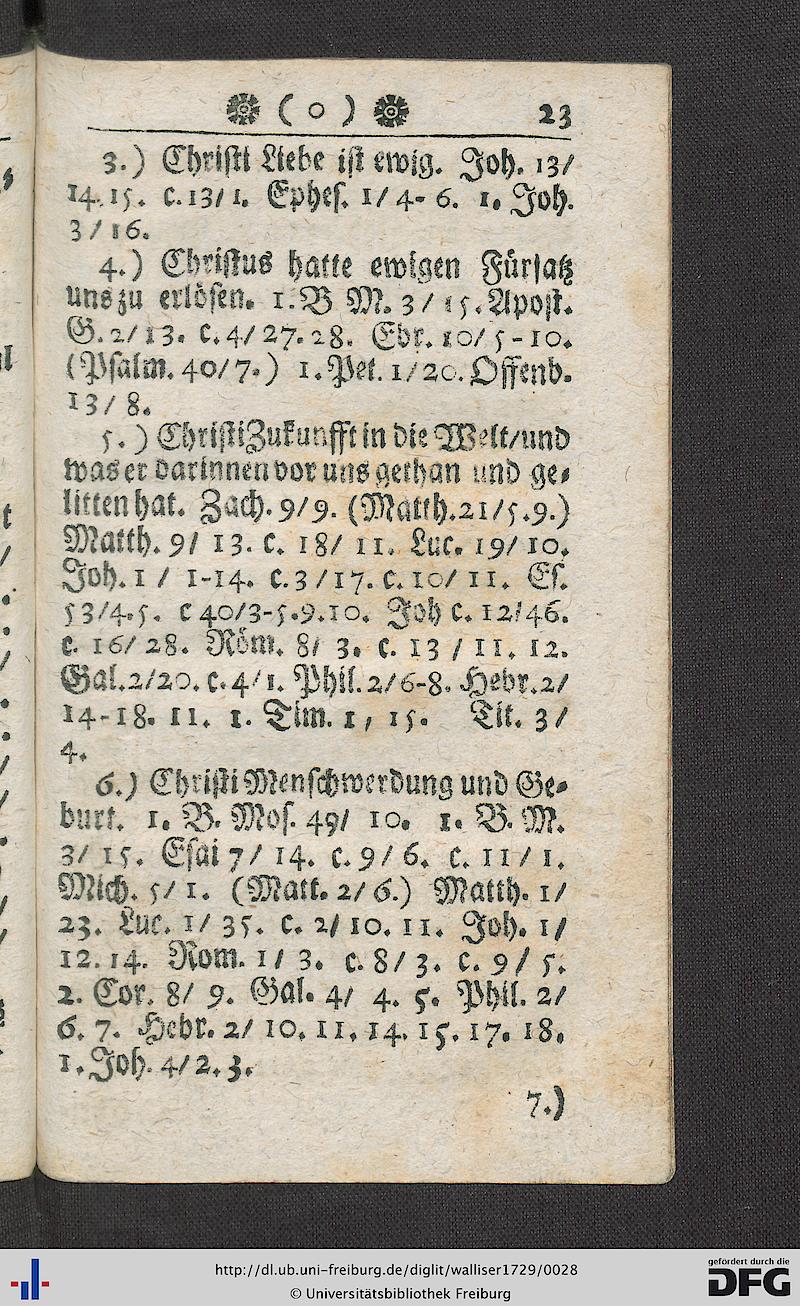 ( o ) 23
3.) Christi Liebe ist ewig. Joh. 13/
14.15. c.13/1. Ephes. 1/4-6. 1. Joh.
3/16.
4.) Christus hatte ewigen Fürsatz
uns zu erlösen. 1.B M. 3/15. Apost.
G.2/13. c.4/27.28. Ebr. 10/5-10.
(Psalm. 40/7.) 1.Pet. 1/20. Offenb.
13/8.
5.) Christi Zukunfft in die Welt/und
was er darinnen vor uns gethan und ge-
litten hat. Zach. 9/9. (Matth.21/5.9.)
Matth. 9/ 13. c. 18/ 11. Luc. 19/10.
Joh. 1 / 1-14. c.3/17. c.10/ 11. Es.
53/4.5. c 40/3-5.9.10. Joh c. 12/46.
c. 16/28. Röm. 8/ 3. c. 13 / 11. 12.
Gal.2/20. c.4/1. Phil.2/6-8. Hebr.2/
14-18. 11. 1. Tim. 1, 15. Tit. 3/
4.
6.) Christi Menschwerdung und Ge-
burt. 1. B. Mos. 49/ 10. 1. B. M.
3/ 15. Esai 7/ 14. c.9/6. c. 11/1.
Mich. 5/1. (Matt. 2/6.) Matth. 1/
23. Luc. 1/35. c. 2/10.11. Joh. 1/
12.14. Rom. 1/ 3. c.8/3. c. 9/5.
2. Cor. 8/ 9. Gal. 4/ 4. 5. Phil. 2/
6. 7. Hebr. 2/ 10.11.14.15.17.18.
1. Joh. 4/2.3.
7.)
http://dl.ub.uni-freiburg.de/diglit/walliser1729/0028
© Universitätsbibliothek Freiburg
gefördert durch die
DFG